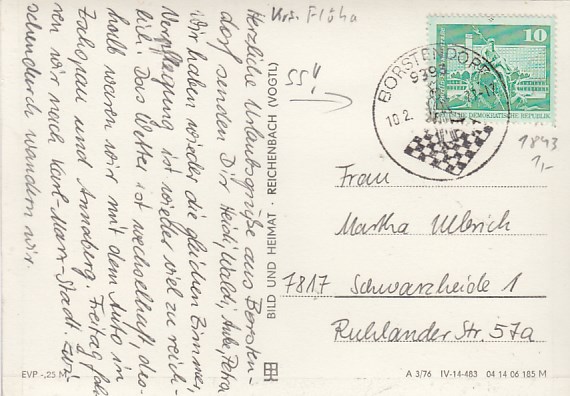 Krs. Flöha
SS!!
Herzliche Urlaubsgrüße aus Borsten-
dorf senden Dir Heidi, Waldi, Anke, Petra
Wir haben wieder die gleichen Zimmer,
Verpflegung ist wieder viel zu reich-
lich. Das Wetter ist wechselhaft, des-
halb waren wir mit dem Auto in
Zschopau und Annaberg. Freitag fah-
ren wir nach Karl-Marx-Stadt. Zwi-
schendurch wandern wir.
BILD UND HEIMAT · REICHENBACH (VOGTL)
10
DEUTSCHE DEMOKRATISCHE REPUBLIK
BORSTENDORF
10.2.
1843
1,-
Frau
Martha Ullrich
7817 Schwarzheide 1
Ruhlander Str. 57a
EVP -,25 M
A 3/76 IV-14-483 04 14 06 185 M